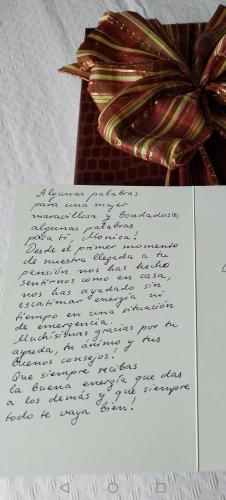 Algunas palabras
para una mujer
maravillosa y bondadosa,
algunas palabras
para ti, Monica!
Desde el primer momento
de nuestra llegada a tu
pensión nos has hecho
sentirnos como en casa,
nos has ayudado sin
escatimar energía ni
tiempo en una situación
de emergencia.
Muchísimas gracias por tu
ayuda, tu ánimo y tus
buenos consejos!
Que siempre recibas
la buena energía que das
a los demás y que siempre
todo te vaya bien!